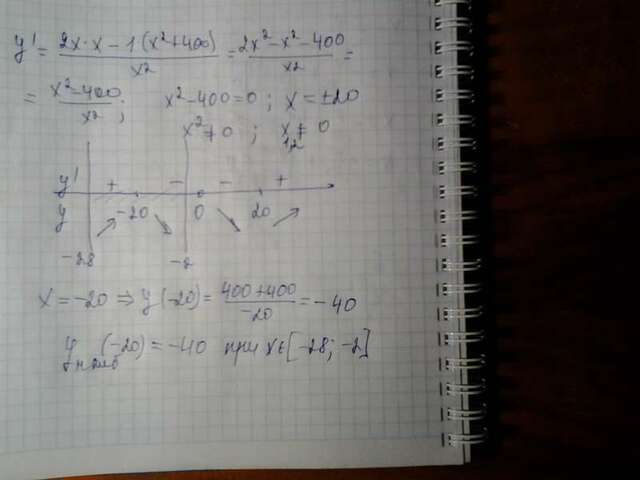 y' = (2x·x − 1(x²+400))/x² = (2x²−x²−400)/x² =
= (x²−400)/x² ; x²−400=0 ; x=±20
x²≠0 ; x₁,₂≠0
y' + − − +
y −20 0 20
−28 −2
x=−20 ⇒ y(−20) = (400+400)/−20 = −40
y наиб (−20) = −40 при x∈[−28; −2]